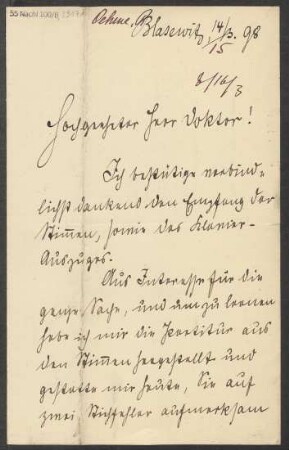 Oehme, Blasewitz, 14/3. 98
15
b/16/3
Hochgeehrter Herr Doktor!
Ich bestätige verbind-
lichst dankend den Empfang der
Stimmen, sowie des Klavier-
Auszuges.
Aus Interesse für die
ganze Sache, und um zu lernen
habe ich mir die Partitur aus
den Stimmen hergestellt und
gestatte mir heute, Sie auf
zwei Stichfehler aufmerksam